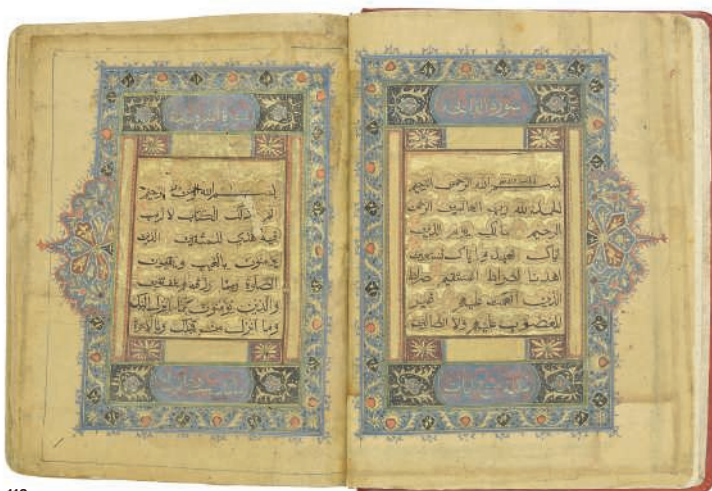 سورة
بسم الله الرحمن الرحيم
الحمد لله رب العالمين الرحمن
الرحيم مالك يوم الدين
اياك نعبد واياك نستعين
اهدنا الصراط المستقيم صراط
الذين انعمت عليهم غير
المغضوب عليهم ولا الضالين
بسم الله الرحمن الرحيم
الم ذلك الكتاب لا ريب
فيه هدى للمتقين الذين
يؤمنون بالغيب ويقيمون
الصلوة ومما رزقناهم ينفقون
والذين يؤمنون بما انزل اليك
وما انزل من قبلك وبالاخرة